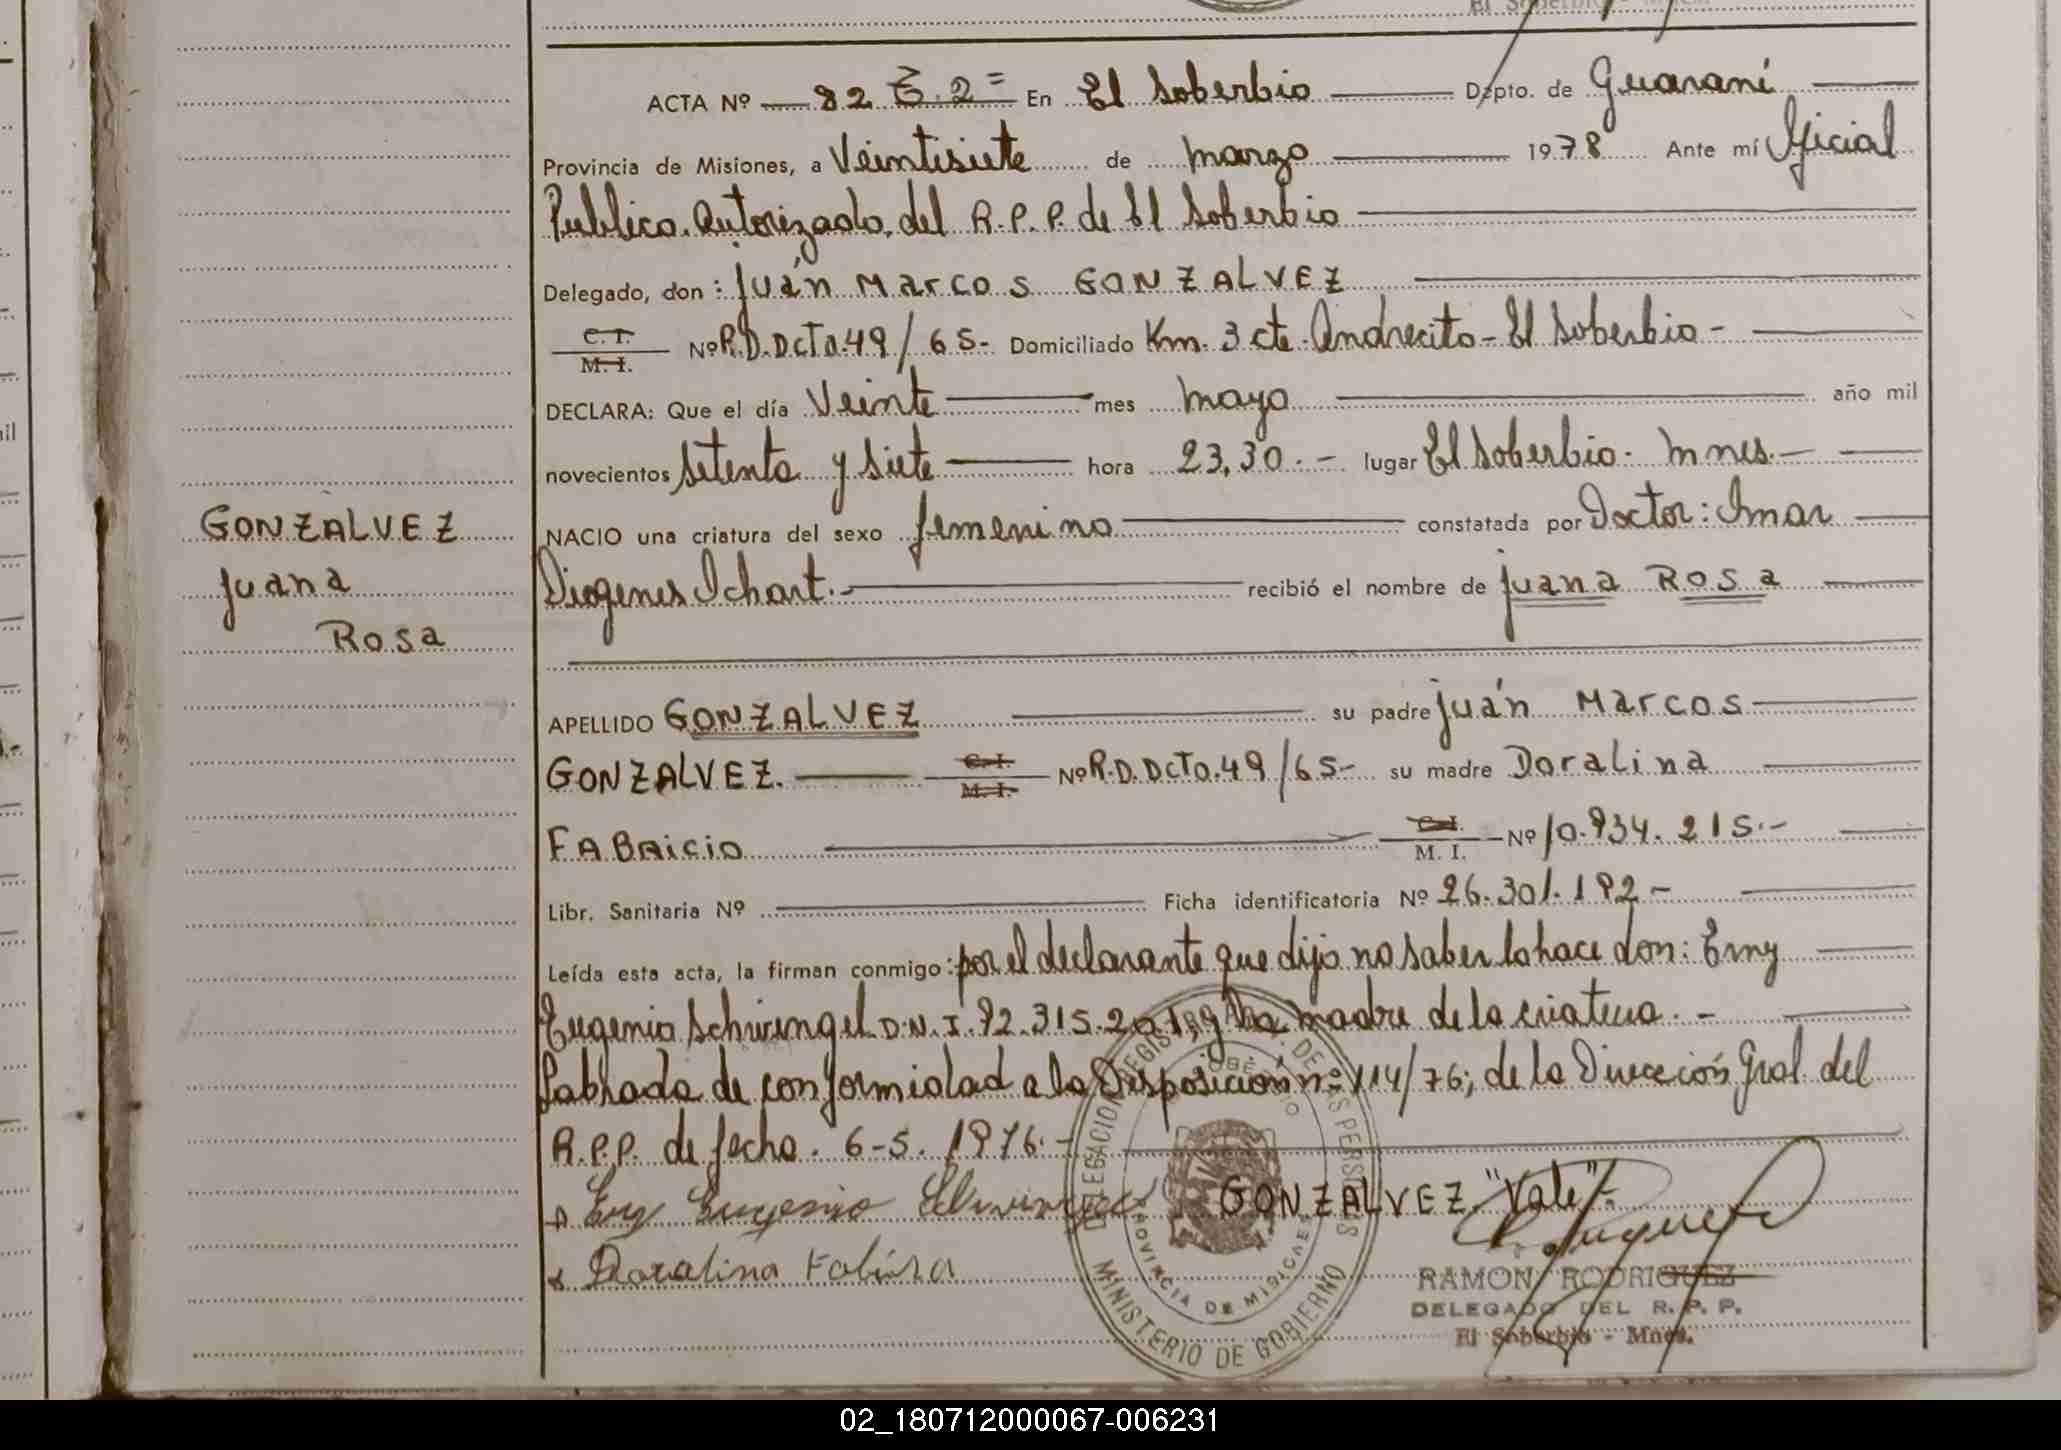 ACTA Nº 82 En El Soberbio Dpto. de Guaraní
Provincia de Misiones, a Veintisiete de marzo 1978 Ante mí Oficial
Publico Autorizado del R.P.P. de El Soberbio
Delegado, don: Juán Marcos GONZALVEZ
C. I.
M. I. Nº R.D.Dcto.49/65.- Domiciliado Km. 3 cte. Andrecito - El Soberbio -
DECLARA: Que el día Veinte mes mayo año mil
novecientos setenta y siete hora 23,30.- lugar El Soberbio. Mnes.-
NACIO una criatura del sexo femenino constatada por Doctor: Imar
GONZALVEZ
Juana
Rosa
Diogenes Ichart.- recibió el nombre de Juana Rosa
APELLIDO GONZALVEZ su padre Juán Marcos
GONZALVEZ. C. I. M. I. Nº R.D.Dcto.49/65- su madre Doralina
FABRICIO C. I. M. I. Nº 10.934.215.-
Libr. Sanitaria Nº Ficha identificatoria Nº 26.301.192-
Leída esta acta, la firman conmigo: por el declarante que dijo no saber lo hace don: Erny
Eugenio Schwengel D.N.I. 92.315.201, y la madre de la criatura. -
Labrada de conformidad a la Disposición nº 114/76; de la Dirección Gral. del
R.P.P. de fecha. 6-5. 1976.-
GONZALVEZ "Vale".-
Eugenio
Doralina
DELEGACION REGISTRO DE LAS PERSONAS
EL SOBERBIO
PROVINCIA DE MISIONES
MINISTERIO DE GOBIERNO
RAMON RODRIGUEZ
DELEGADO DEL R. P. P.
El Soberbio - Mnes.
02_180712000067-006231